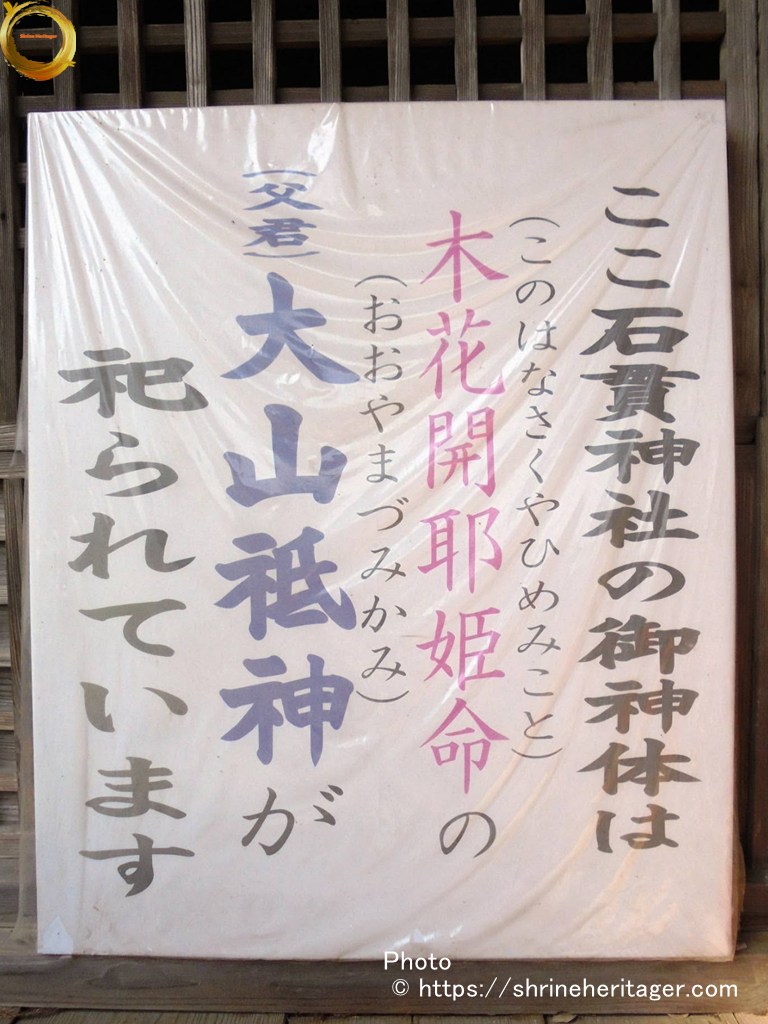 ここ石貫神社の御神体は
(このはなさくやひめみこと)
木花開耶姫命の
(おおやまづみかみ)
(父君)大山祗神が
祀られています
Shrine Heritager
Photo
© https://shrineheritager.com